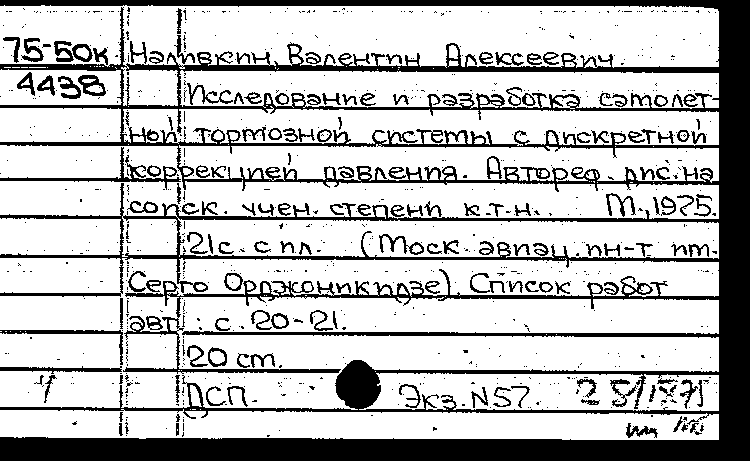 75-50к Наливкин, Валентин Алексеевич.
4438 Исследование и разработка самолет-
ной тормозной системы с дискретной
коррекцией давления. Автореф. дис. на
соиск. учен. степени к.т.н.. М., 1975.
21с. с ил. (Моск. авиац. ин-т им.
Серго Орджоникидзе). Список работ
авт.: с. 20-21.
20 cm.
ДСП. Экз. N57.